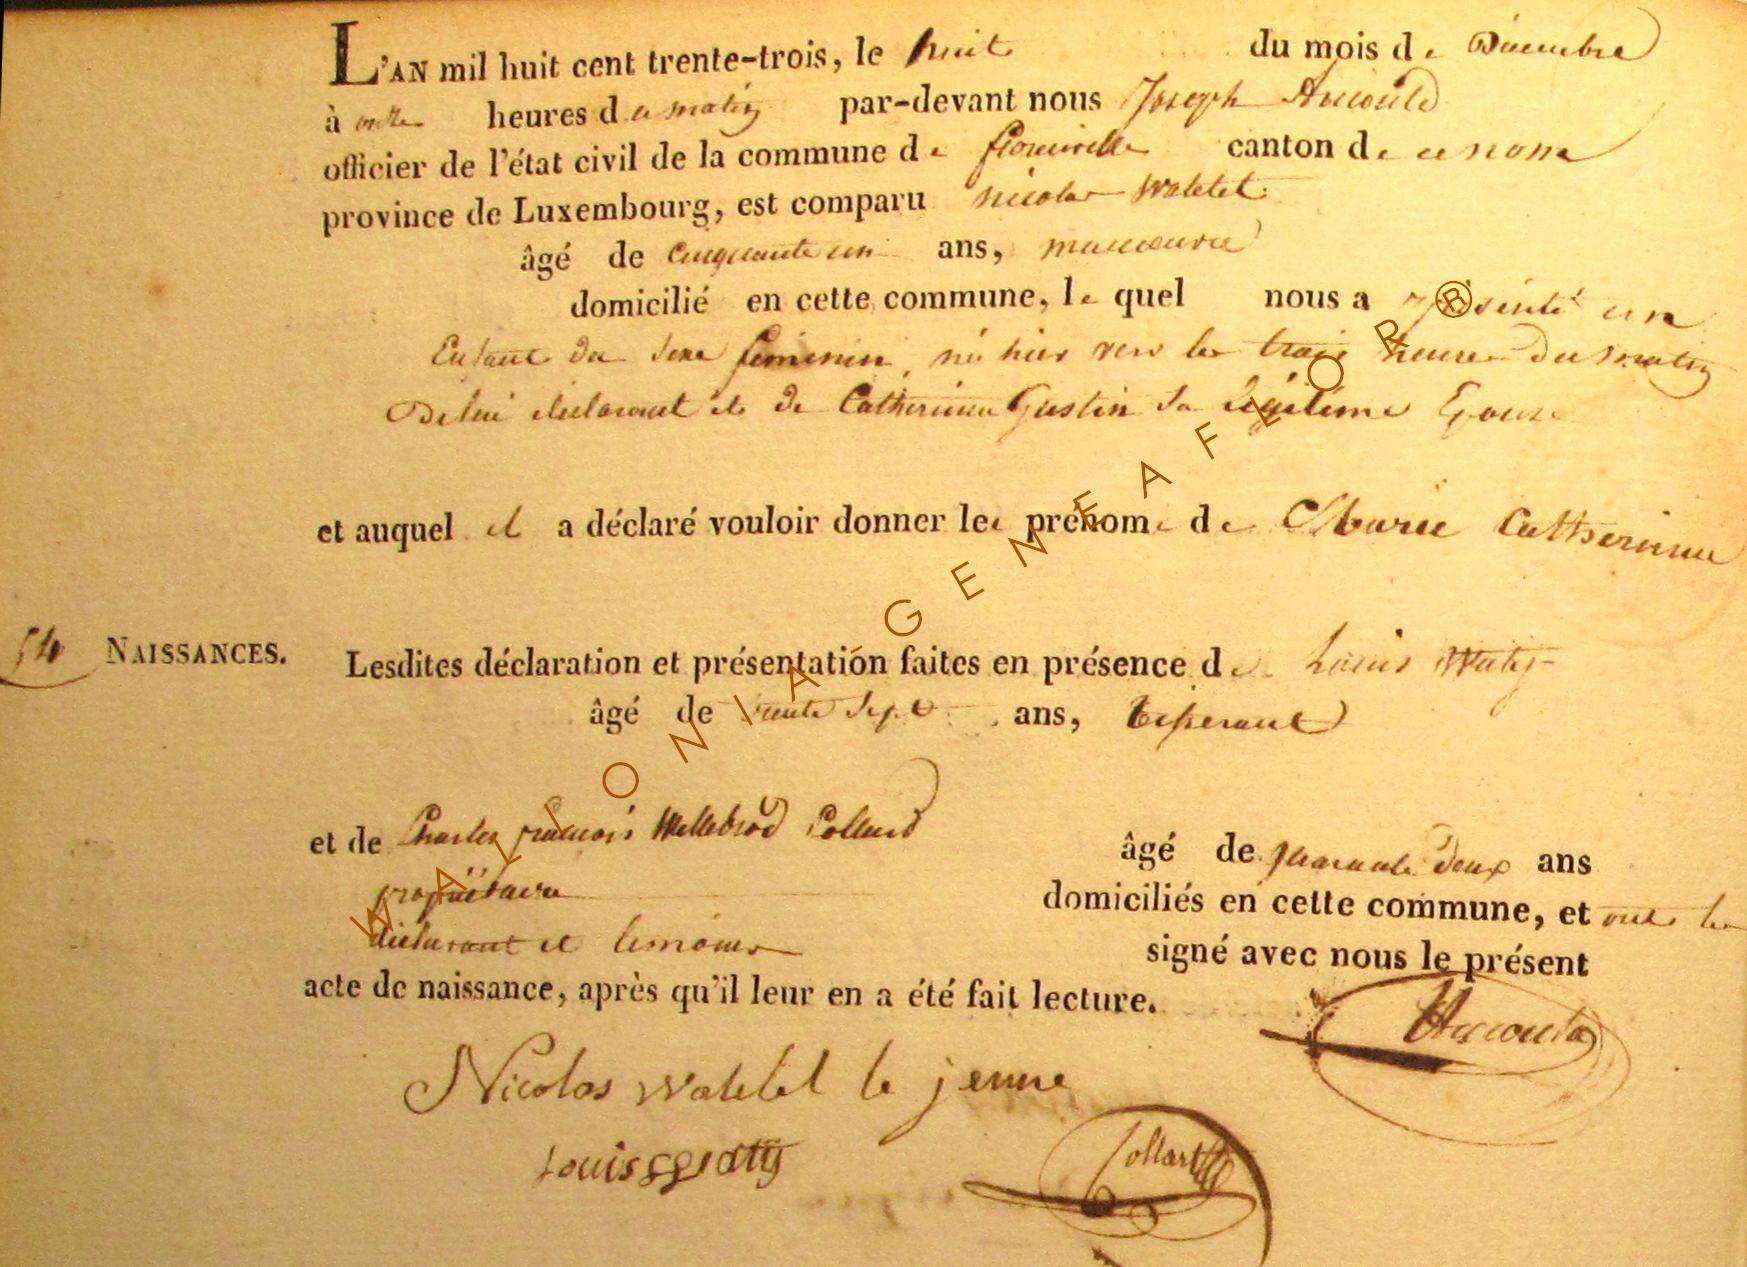 L'AN mil huit cent trente-trois, le huit du mois de Décembre
à onze heures du matin par-devant nous Joseph Arnould
officier de l'état civil de la commune de florenville canton de ce nom
province de Luxembourg, est comparu Nicolas Watelet
âgé de cinquante un ans, manoeuvre
domicilié en cette commune, le quel nous a présenté un
Enfant du sexe féminin, né hier vers les trois heures du matin
De lui déclarant et de Catherinne Gustin sa légitime Epouse
et auquel il a déclaré vouloir donner les prénoms de Marie Catherinne
54 NAISSANCES.
Lesdites déclaration et présentation faites en présence de Louis
âgé de trente sept ans, tisserant
et de Charles françois Willebrod Collard âgé de quarante deux ans
propriétaire domiciliés en cette commune, et ont les
déclarant et témoins signé avec nous le présent
acte de naissance, après qu'il leur en a été fait lecture.
Arnould
Nicolas Watelet le jeune
Louis
Collart
WALLONIA GENEAFEOR ®